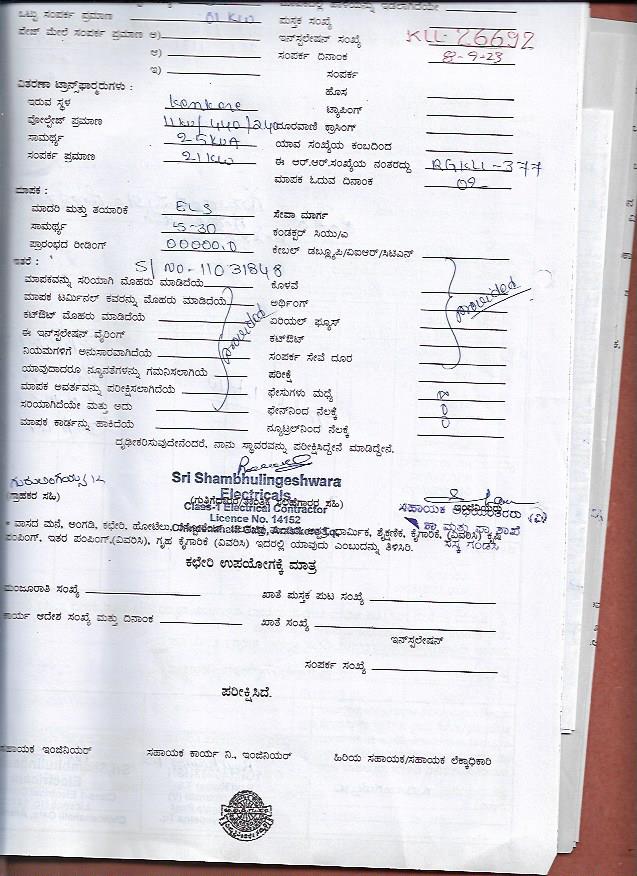 ಒಟ್ಟು ಸಂಪರ್ಕ ಪ್ರಮಾಣ 01 KW ಪುಸ್ತಕ ಸಂಖ್ಯೆ
ಪೇಜ್ ಮೇಲೆ ಸಂಪರ್ಕ ಪ್ರಮಾಣ ಅ) ಇನ್‌ಸ್ಟಲೇಷನ್ ಸಂಖ್ಯೆ KLL-26692
ಆ) ಸಂಪರ್ಕ ದಿನಾಂಕ 8-9-23
ಇ) ಸಂಪರ್ಕ
ಹೊಸ
ವಿತರಣಾ ಟ್ರಾನ್ಸ್‌ಫಾರ್ಮರುಗಳು :
ಇರುವ ಸ್ಥಳ Kenkere ಟ್ಯಾಪಿಂಗ್
ವೋಲ್ಟೇಜ್ ಪ್ರಮಾಣ 11KV/440/240 ದೂರವಾಣಿ ಕ್ರಾಸಿಂಗ್
ಸಾಮರ್ಥ್ಯ 25KVA ಯಾವ ಸಂಖ್ಯೆಯ ಕಂಬದಿಂದ
ಸಂಪರ್ಕ ಪ್ರಮಾಣ 21KW ಈ ಆರ್.ಆರ್.ಸಂಖ್ಯೆಯ ನಂತರದ್ದು RGKLL-377
ಮಾಪಕ ಓದುವ ದಿನಾಂಕ 02
ಮಾಪಕ :
ಮಾದರಿ ಮತ್ತು ತಯಾರಿಕೆ ELS ಸೇವಾ ಮಾರ್ಗ
ಸಾಮರ್ಥ್ಯ 5-30 ಕಂಡಕ್ಟರ್ ಸಿಯು/ಎ
ಪ್ರಾರಂಭದ ರೀಡಿಂಗ್ 00000.0 ಕೇಬಲ್ ಡಬ್ಲ್ಯೂಪಿ/ಏಐಆರ್/ಸಿಟಿಎಸ್
ಇತರೆ : S/NO-11031848
ಮಾಪಕವನ್ನು ಸರಿಯಾಗಿ ಮೊಹರು ಮಾಡಿದೆಯೆ ಕೊಳವೆ
ಮಾಪಕ ಟರ್ಮಿನಲ್ ಕವರನ್ನು ಮೊಹರು ಮಾಡಿದೆಯೆ ಅರ್ಥಿಂಗ್ provided
ಕಟ್‌ಔಟ್ ಮೊಹರು ಮಾಡಿದೆಯೆ provided ಏರಿಯಲ್ ಫ್ಯೂಸ್
ಈ ಇನ್‌ಸ್ಟಲೇಷನ್ ವೈರಿಂಗ್ ಕಟ್‌ಔಟ್
ನಿಯಮಗಳಿಗೆ ಅನುಸಾರವಾಗಿದೆಯೆ ಸಂಪರ್ಕ ಸೇವೆ ದೂರ
ಯಾವುದಾದರೂ ನ್ಯೂನತೆಗಳನ್ನು ಗಮನಿಸಲಾಗಿಯೆ ಪರೀಕ್ಷೆ
ಮಾಪಕ ಅವರ್ತವನ್ನು ಪರೀಕ್ಷಿಸಲಾಗಿದೆಯೆ ಫೇಸುಗಳು ಮಧ್ಯೆ
ಸರಿಯಾಗಿದೆಯೇ ಮತ್ತು ಅದು ಫೇಸ್‌ನಿಂದ ನೆಲಕ್ಕೆ
ಮಾಪಕ ಕಾರ್ಡನ್ನು ಹಾಕಿದೆಯೆ ನ್ಯೂಟ್ರಲ್‌ನಿಂದ ನೆಲಕ್ಕೆ
ದೃಢೀಕರಿಸುವುದೇನೆಂದರೆ, ನಾನು ಸ್ಥಾವರವನ್ನು ಪರೀಕ್ಷಿಸಿದ್ದೇನೆ ಮಾಡಿದ್ದೇನೆ.
Sri Shambhulingeshwara
Electricals
(ಗ್ರಾಹಕರ ಸಹಿ)
Class-1 Electrical Contractor
Licence No. 14152
* ವಾಸದ ಮನೆ, ಅಂಗಡಿ, ಕಛೇರಿ, ಹೋಟೆಲು, ಧಾರ್ಮಿಕ, ಶೈಕ್ಷಣಿಕ, ಕೈಗಾರಿಕೆ, (ವಿವರಿಸಿ) ಕೃಷಿ
ಪಂಪಿಂಗ್, ಇತರ ಪಂಪಿಂಗ್,(ವಿವರಿಸಿ), ಗೃಹ ಕೈಗಾರಿಕೆ (ವಿವರಿಸಿ) ಇದರಲ್ಲಿ ಯಾವುದು ಎಂಬುದನ್ನು ತಿಳಿಸಿರಿ.
ಕಛೇರಿ ಉಪಯೋಗಕ್ಕೆ ಮಾತ್ರ
ಮಂಜೂರಾತಿ ಸಂಖ್ಯೆ ಖಾತೆ ಪುಸ್ತಕ ಪುಟ ಸಂಖ್ಯೆ
ಕಾರ್ಯ ಆದೇಶ ಸಂಖ್ಯೆ ಮತ್ತು ದಿನಾಂಕ ಖಾತೆ ಸಂಖ್ಯೆ
ಇನ್‌ಸ್ಟಲೇಷನ್
ಸಂಪರ್ಕ ಸಂಖ್ಯೆ
ಪರೀಕ್ಷಿಸಿದೆ.
ಸಹಾಯಕ ಇಂಜಿನಿಯರ್ ಸಹಾಯಕ ಕಾರ್ಯ ನಿ., ಇಂಜಿನಿಯರ್ ಹಿರಿಯ ಸಹಾಯಕ/ಸಹಾಯಕ ಲೆಕ್ಕಾಧಿಕಾರಿ